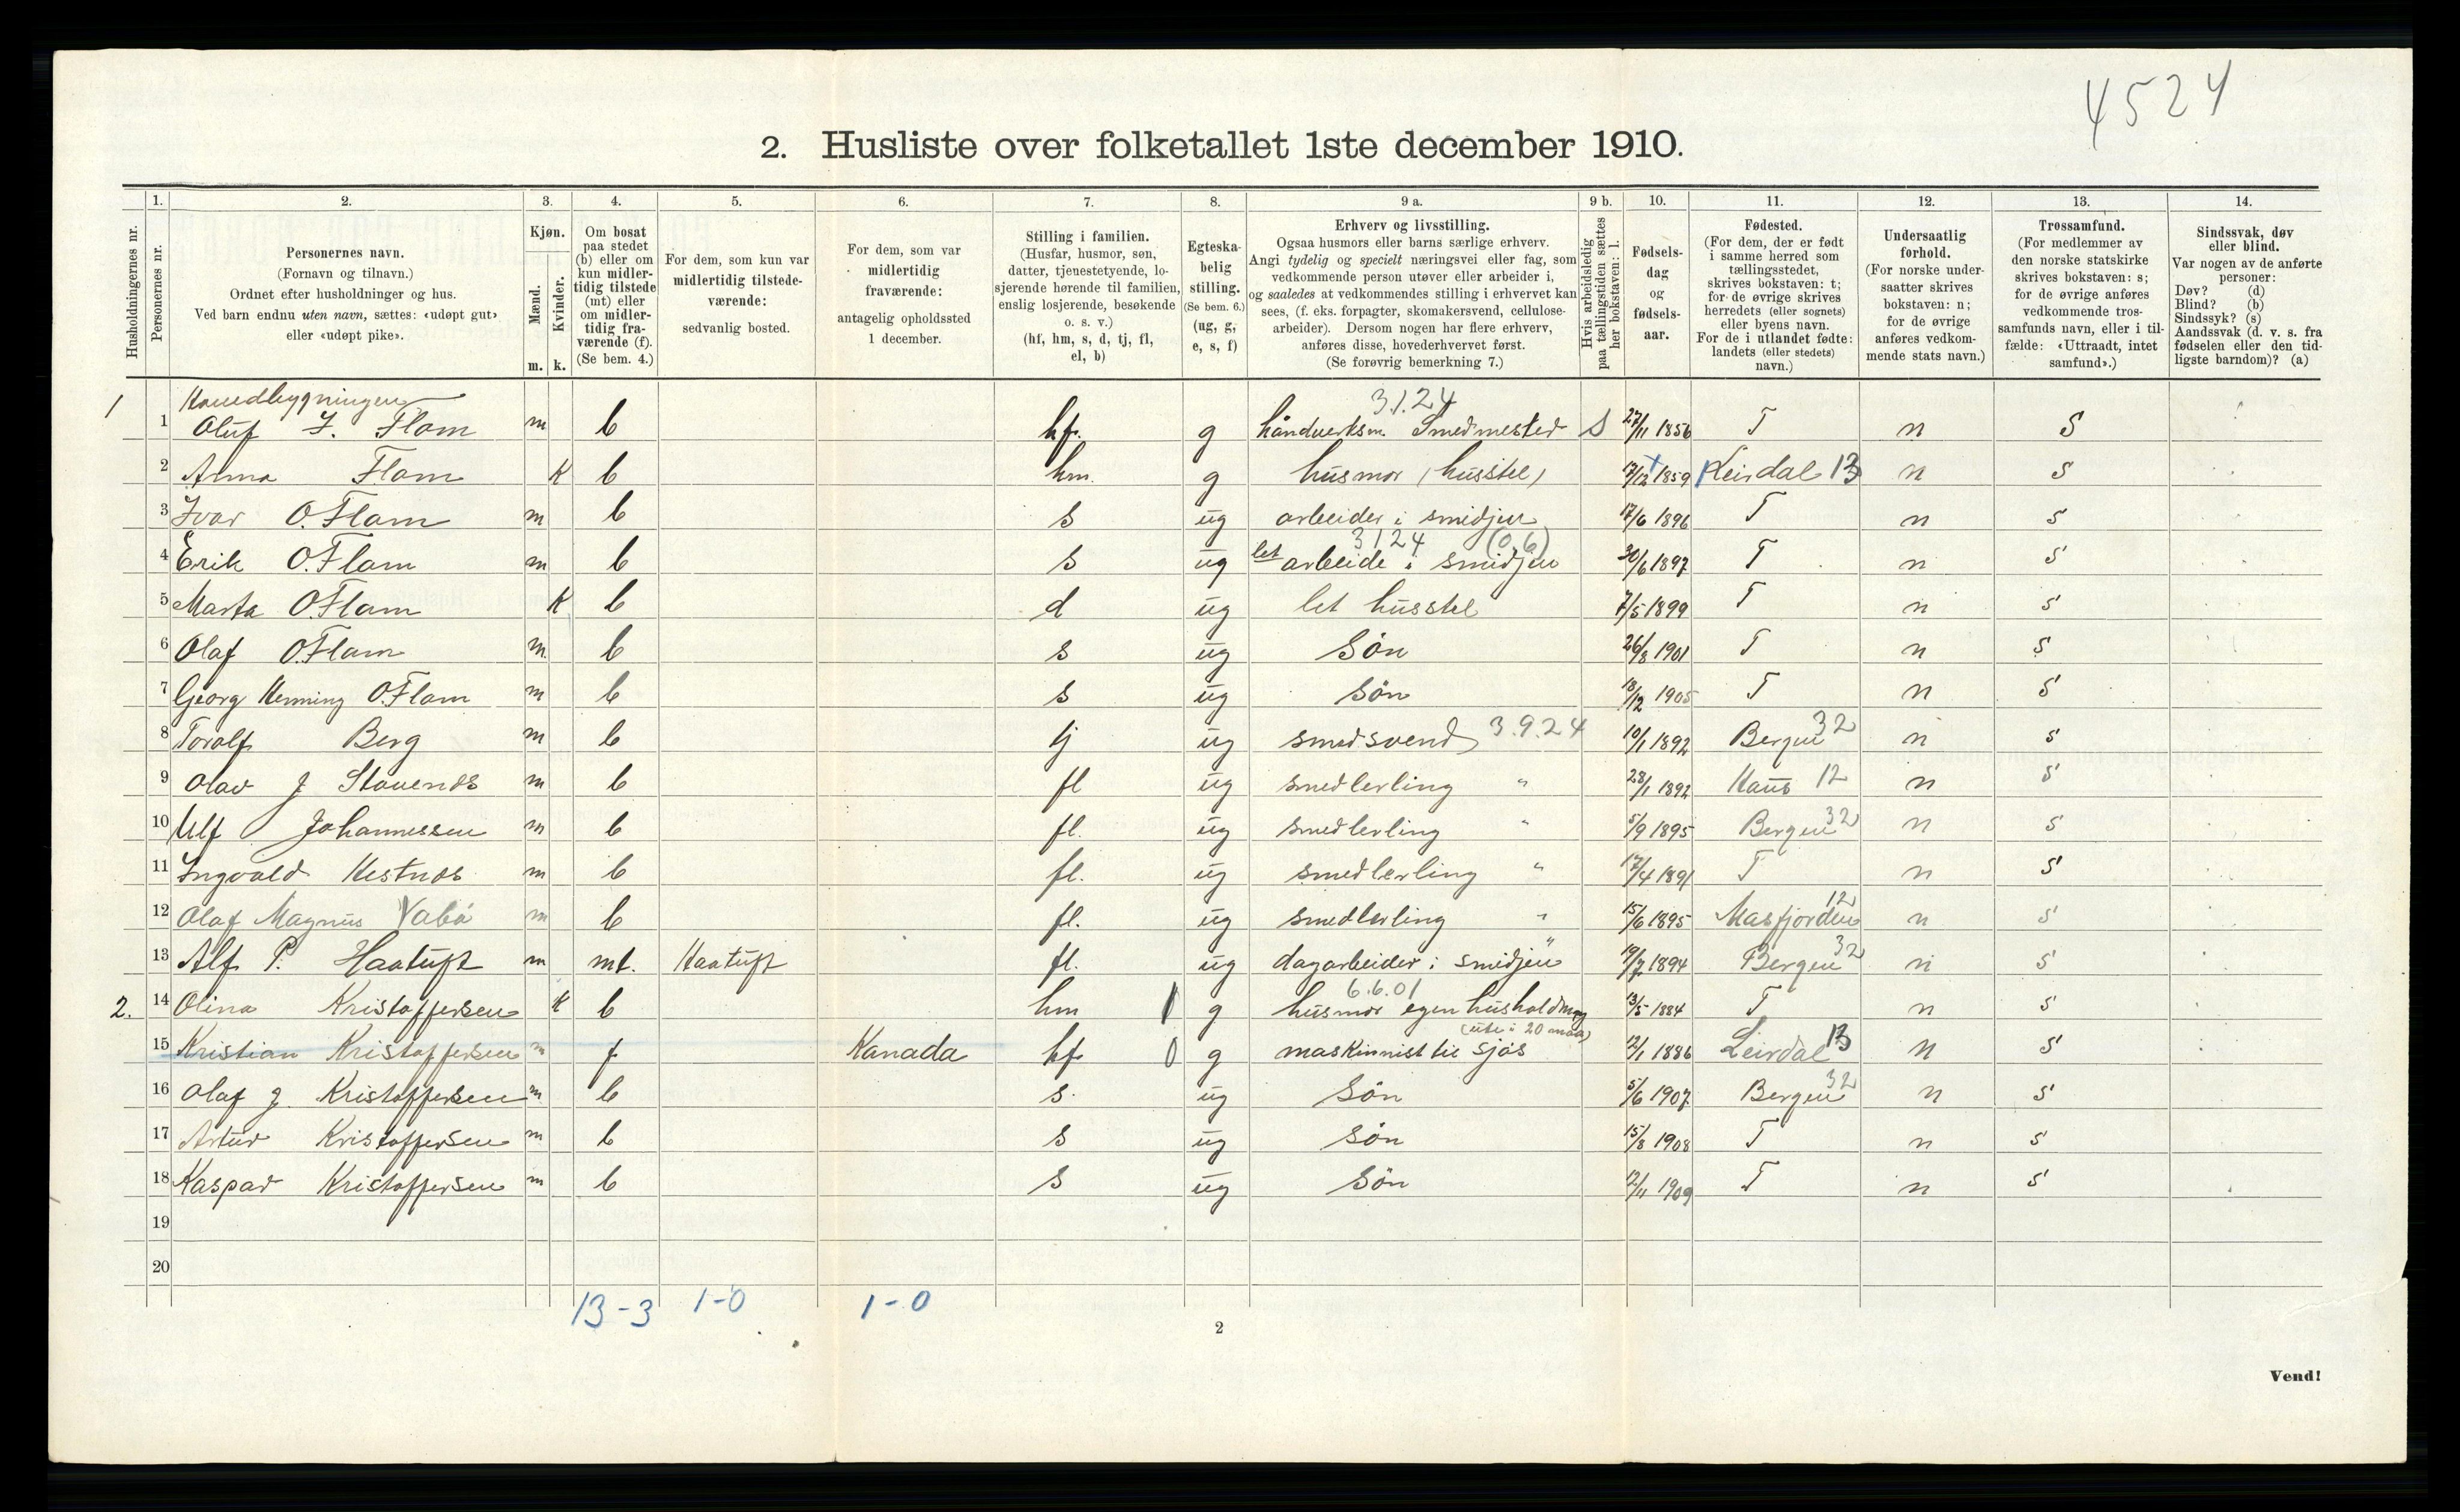 4524
2. Husliste over folketallet 1ste december 1910.
Husholdningernes nr.
1. Personernes nr.
2. Personernes navn.
(Fornavn og tilnavn.)
Ordnet efter husholdninger og hus.
Ved barn endnu uten navn, sættes: «udøpt gut»
eller «udøpt pike».
3. Kjøn.
Mænd. Kvinder.
m. k.
4. Om bosat
paa stedet
(b) eller om
kun midler-
tidig tilstede
(mt) eller
om midler-
tidig fra-
værende (f).
(Se bem. 4.)
5. For dem, som kun var
midlertidig tilstede-
værende:
sedvanlig bosted.
6. For dem, som var
midlertidig
fraværende:
antagelig opholdssted
1 december.
7. Stilling i familien.
(Husfar, husmor, søn,
datter, tjenestetyende, lo-
sjerende hørende til familien,
enslig losjerende, besøkende
o. s. v.)
(hf, hm, s, d, tj, fl,
el, b)
8. Egteska-
belig
stilling.
(Se bem. 6.)
(ug, g,
e, s, f)
9 a. Erhverv og livsstilling.
Ogsaa husmors eller barns særlige erhverv.
Angi tydelig og specielt næringsvei eller fag, som
vedkommende person utøver eller arbeider i,
og saaledes at vedkommendes stilling i erhvervet kan
sees, (f. eks. forpagter, skomakersvend, cellulose-
arbeider). Dersom nogen har flere erhverv,
anføres disse, hovederhvervet først.
(Se forøvrig bemerkning 7.)
9 b. Hvis arbeidsledig
paa tællingstiden sættes
her bokstaven: l.
10. Fødsels-
dag
og
fødsels-
aar.
11. Fødested.
(For dem, der er født
i samme herred som
tællingsstedet,
skrives bokstaven: t;
for de øvrige skrives
herredets (eller sognets)
eller byens navn.
For de i utlandet fødte:
landets (eller stedets)
navn.)
12. Undersaatlig
forhold.
(For norske under-
saatter skrives
bokstaven: n;
for de øvrige
anføres vedkom-
mende stats navn.)
13. Trossamfund.
(For medlemmer av
den norske statskirke
skrives bokstaven: s;
for de øvrige anføres
vedkommende tros-
samfunds navn, eller i til-
fælde: «Uttraadt, intet
samfund».)
14. Sindssvak, døv
eller blind.
Var nogen av de anførte
personer:
Døv? (d)
Blind? (b)
Sindssyk? (s)
Aandssvak (d. v. s. fra
fødselen eller den tid-
ligste barndom)? (a)
Hovedbygningen 3.1.24
1 1 Oluf I. Flam m b hf. g håndverksm. Smedmester S 27/11 1856 T n S
2 Anna Flam K b hm. g husmor (husstel) 17/12 1859 Leirdal 13 n S
3 Ivar O. Flam m b s ug arbeider i smidjen 17/6 1896 T n S
3124 (0,6)
4 Erik O. Flam m b s ug let arbeide i smidjen 30/6 1897 T n S
5 Marta O. Flam K b d ug let husstel 7/5 1899 T n S
6 Olaf O. Flam m b s ug Søn 26/8 1901 T n S
7 Georg Henning O. Flam m b s ug søn 18/12 1905 T n S
8 Toralf Berg m b tj ug smedsvend 3.9.24 10/1 1892 Bergen 32 n s
9 Olav J Stavenes m b fl ug smedlerling " 28/1 1892 Haus 12 n S
10 Ulf Johannessen m b fl. ug smedlerling " 5/9 1895 Bergen 32 n S
11 Ingvald Hestnes m b fl. ug smedlerling " 17/4 1891 T n S
12 Olaf Magnus Vabø m b fl. ug smedlerling " 15/6 1895 Masfjorden 12 n S
13 Alf P. Haatuft m mt. Haatuft fl. ug dagarbeider i smidjen " 19/7 1894 Bergen 32 n S
6.6.01
2. 14 Olina Kristoffersen K b hm 1 g husmor egen husholdning 13/5 1884 T n S
(ute i 20 maan)
15 Kristian Kristoffersen m f Kanada hf 0 g maskinnist til sjøs 12/1 1886 Leirdal 13 n S
16 Olaf J. Kristoffersen m b s. ug Søn 5/6 1907 Bergen 32 n S
17 Artur Kristoffersen m b s ug Søn 15/8 1908 T n S
18 Kaspar Kristoffersen m b s ug Søn 12/11 1909 T n S
19
20
13-3 1-0 1-0
2
Vend!